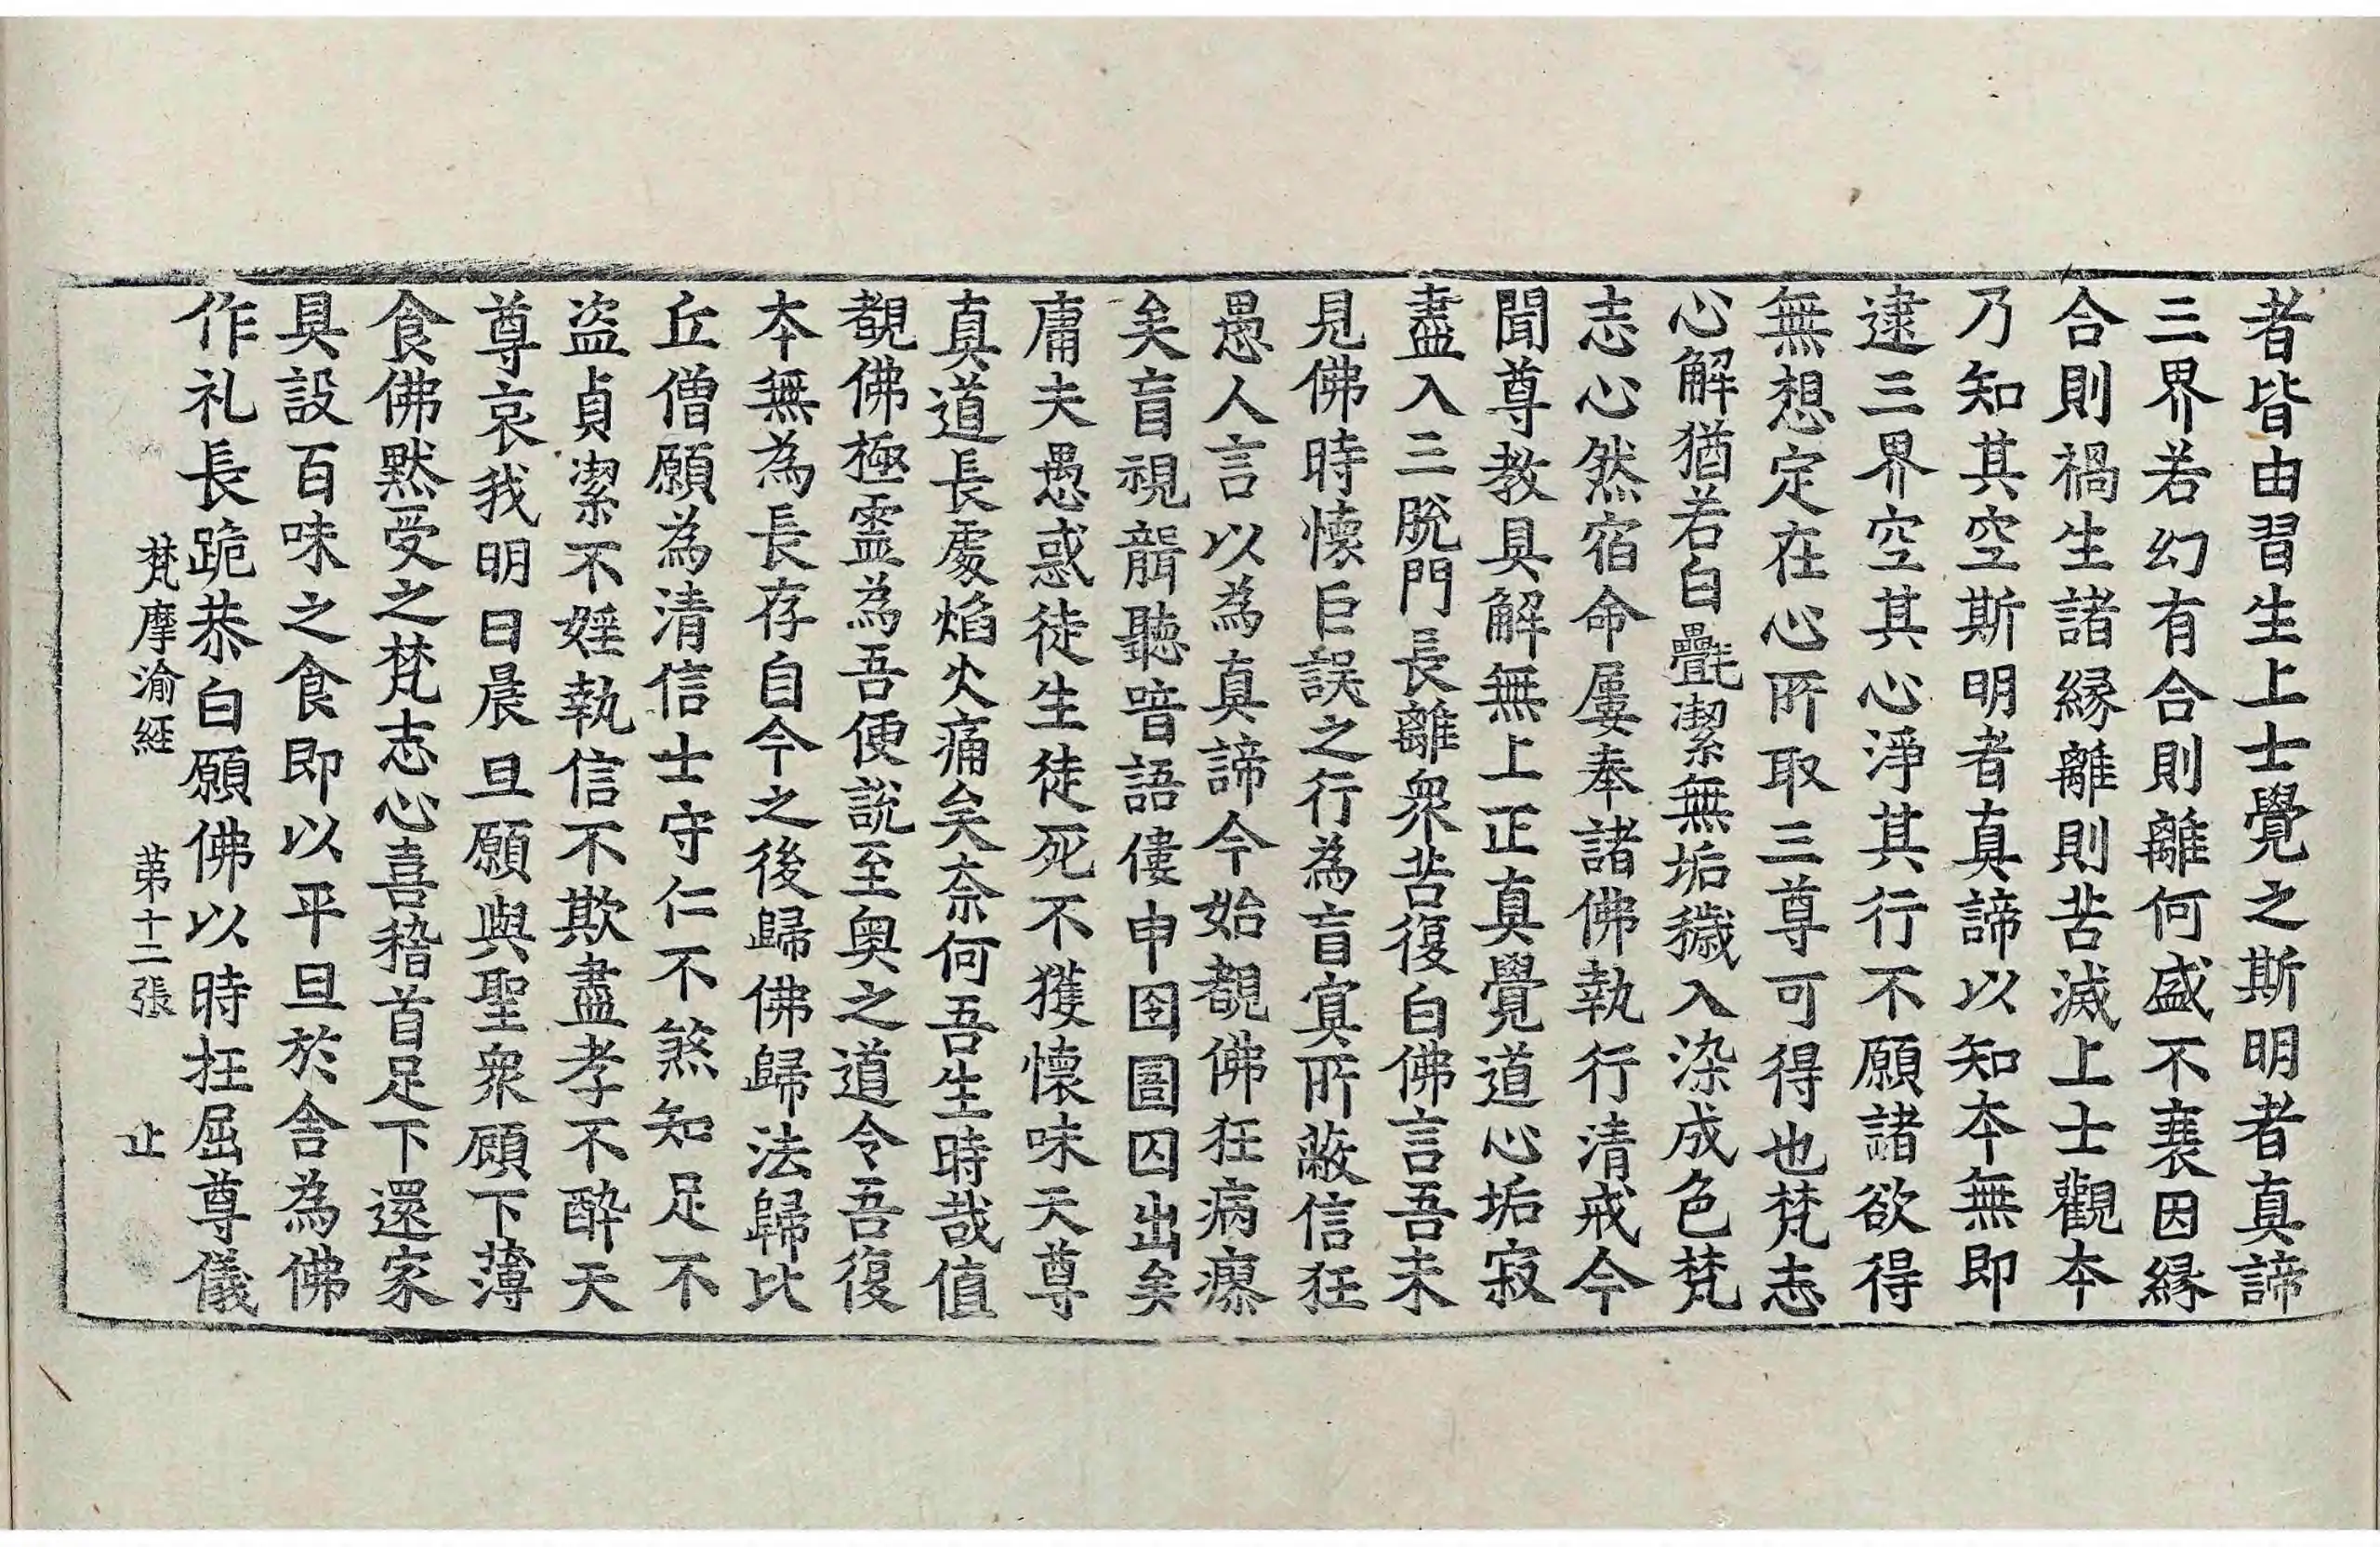 者皆由習生上士覺之斯明者真諦
三界若幻有合則離何盛不衰因縁
合則禍生諸縁離則苦滅上士觀本
乃知其空斯明者真諦以知本無即
逮三界空其心淨其行不願諸欲得
無想定在心所取三尊可得也梵志
心解猶若白㲲潔無垢穢入染成色梵
志心然宿命屢奉諸佛執行清戒今
聞尊教具解無上正真覺道心垢寂
盡入三脫門長離衆苦復白佛言吾未
見佛時懷巨誤之行為盲冥所蔽信狂
愚人言以為真諦今始覩佛狂病瘳
矣盲視聾聽喑語僂申囹圄囚出矣
庸夫愚惑徒生徒死不獲懷味天尊
真道長處焰火痛矣奈何吾生時哉值
覩佛極靈為吾便說至奥之道令吾復
本無為長存自今之後歸佛歸法歸比
丘僧願為清信士守仁不煞知足不
盜貞潔不婬執信不欺盡孝不醉天
尊哀我明日晨旦願與聖衆顧下薄
食佛黙受之梵志心喜稽首足下還家
具設百味之食即以平旦於舍為佛
作礼長跪恭白願佛以時抂屈尊儀
梵摩渝経　第十二張　止